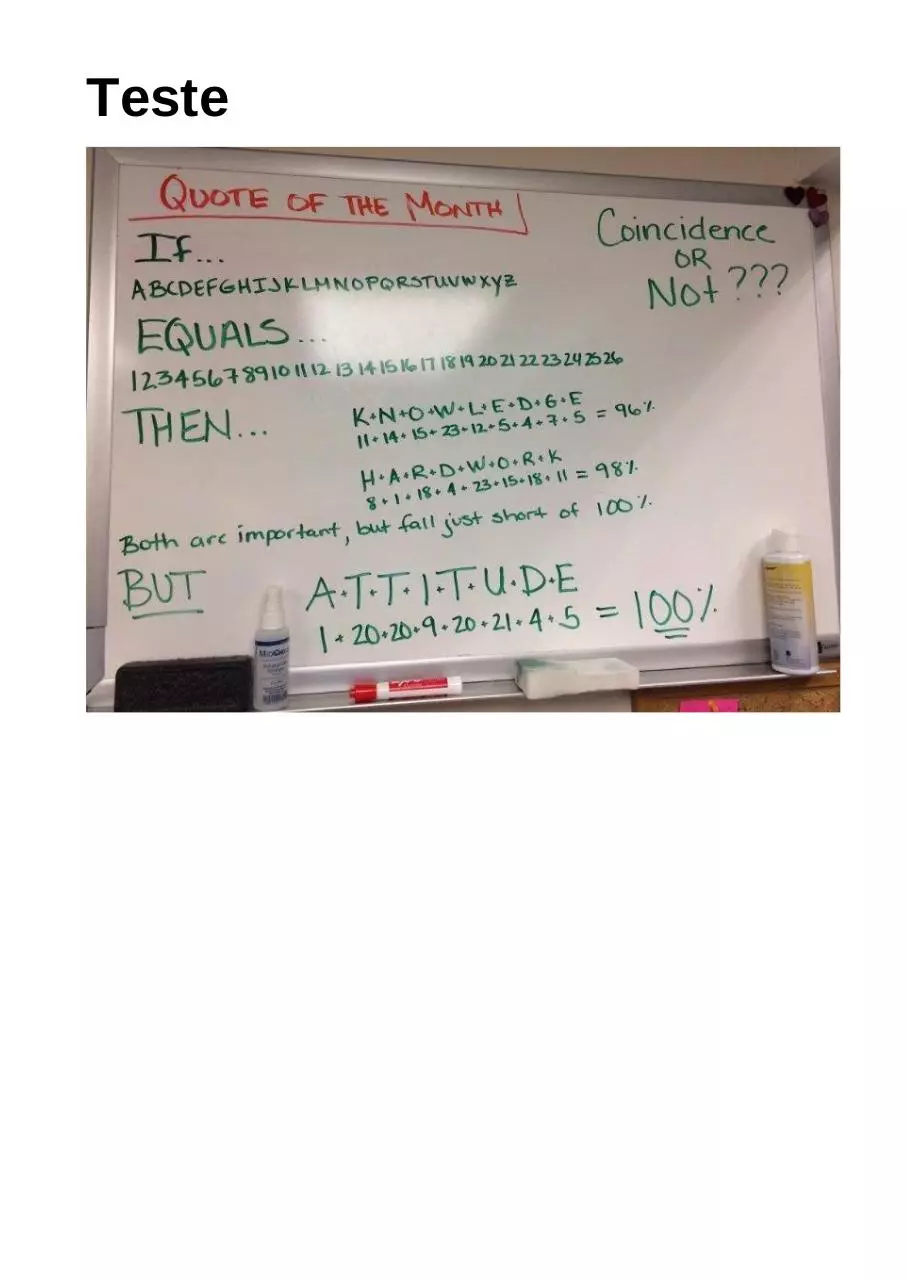 Teste
QUOTE OF THE MONTH
Coincidence
OR
Not ???
If...
ABCDEFGHIJKLMNOPQRSTUVWXYZ
EQUALS...
1 2 3 4 5 6 7 8 9 10 11 12 13 14 15 16 17 18 19 20 21 22 23 24 25 26
THEN...
K+N+O+W+L+E+D+G+E
11+14+15+23+12+5+4+7+5 = 96%
H+A+R+D+W+O+R+K
8+1+18+4+23+15+18+11 = 98%
Both are important, but fall just short of 100%
BUT
A+T+T+I+T+U+D+E
1+20+20+9+20+21+4+5 = 100%